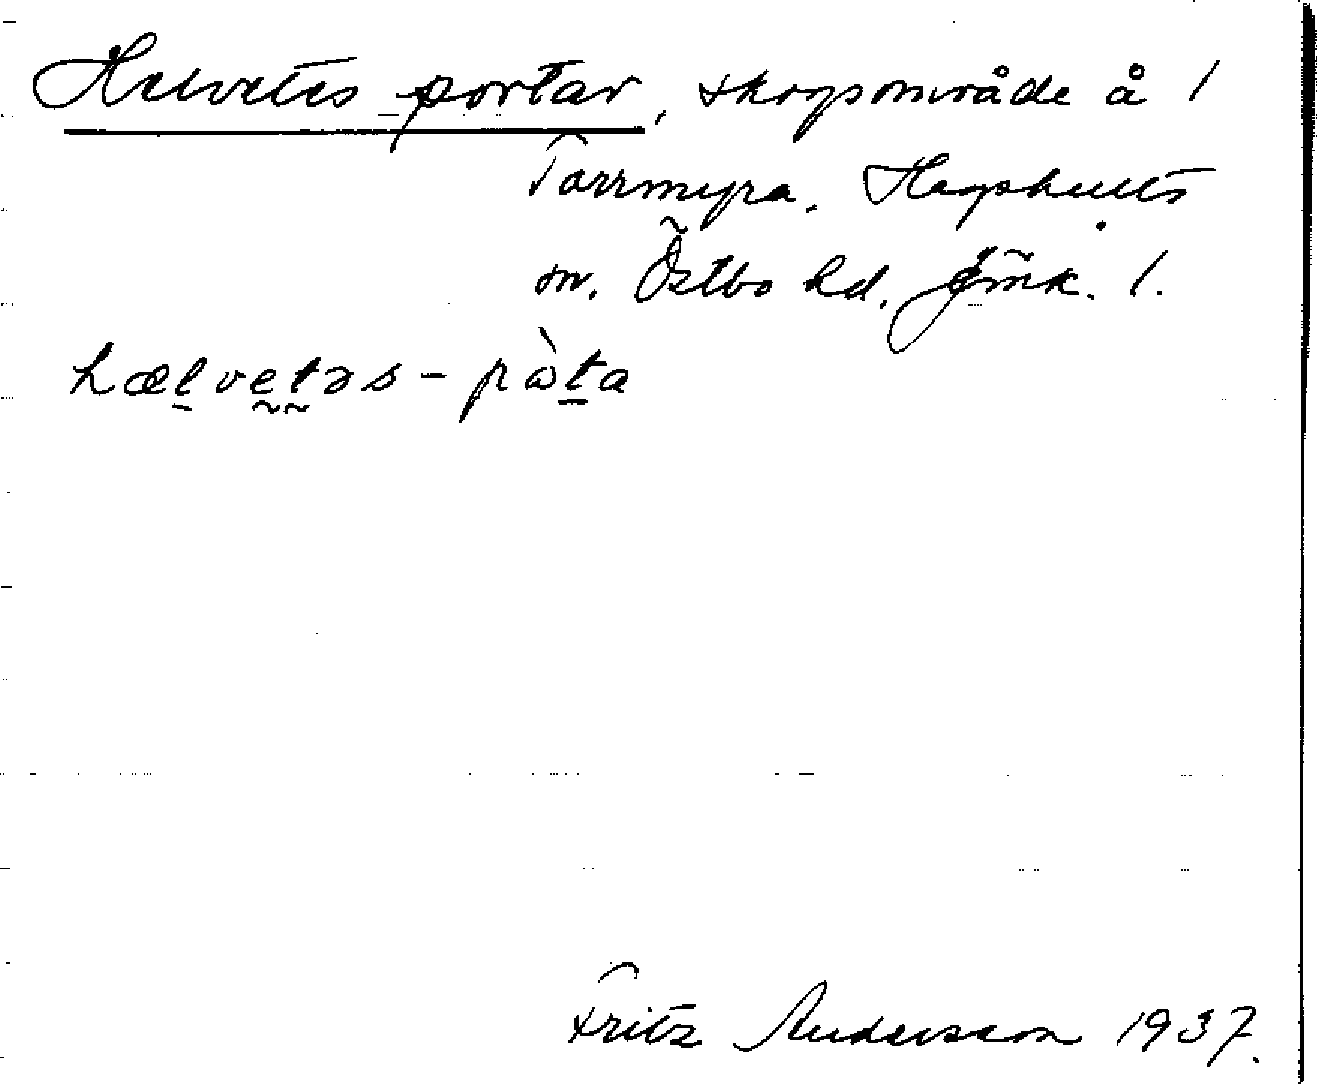 Helvetes portar, skogsområde å 1
Torrmyra. Hagshults
sn. Östbo hd. Jönk. l.
hælvetəs - pɷ̀ta
Fritz Andersson 1937.